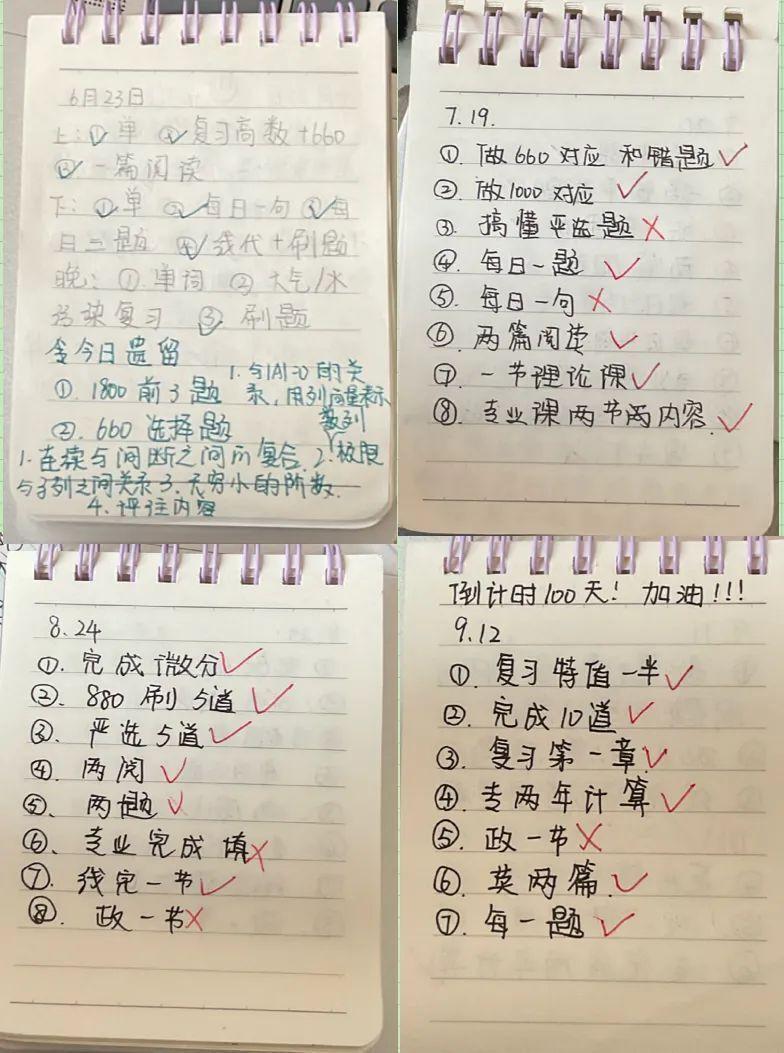 6月23日
上:①✓单 ②✓复习高数+660
③✓一篇阅读
下:①✓单 ②✓每日一句 ③✓每
日三题 ④✓线代+刷题
晚:①.单词 ②大气/水
污染复习 ③✓刷题
今日遗留
①.1800前3题
②.660选择题
1.与|A|=0的关
系,用列向量表示
1.连续与间断之间的复合.2.数列极限
与子列之间关系3.无穷小的阶数.
4.评注内容
7.19.
①.做660对应 和错题✓
②.做1000对应 ✓
③.搞懂严选题×
④.每日一题 ✓
⑤.每日一句×
⑥.两篇阅读✓
⑦.一节理论课✓
⑧.专业课两节两内容.✓
8.24
①.完成微分✓
②.880刷5道✓
③.严选5道✓
④.两阅✓
⑤.两题✓
⑥.专业完成填×
⑦.线完一节✓
⑧.政一书×
倒计时100天! 加油!!!
9.12
①.复习特值一半✓
②.完成10道✓
③.复习第一章✓
④.专两年计算✓
⑤.政一书×
⑥.英两篇.✓
⑦.每一题✓